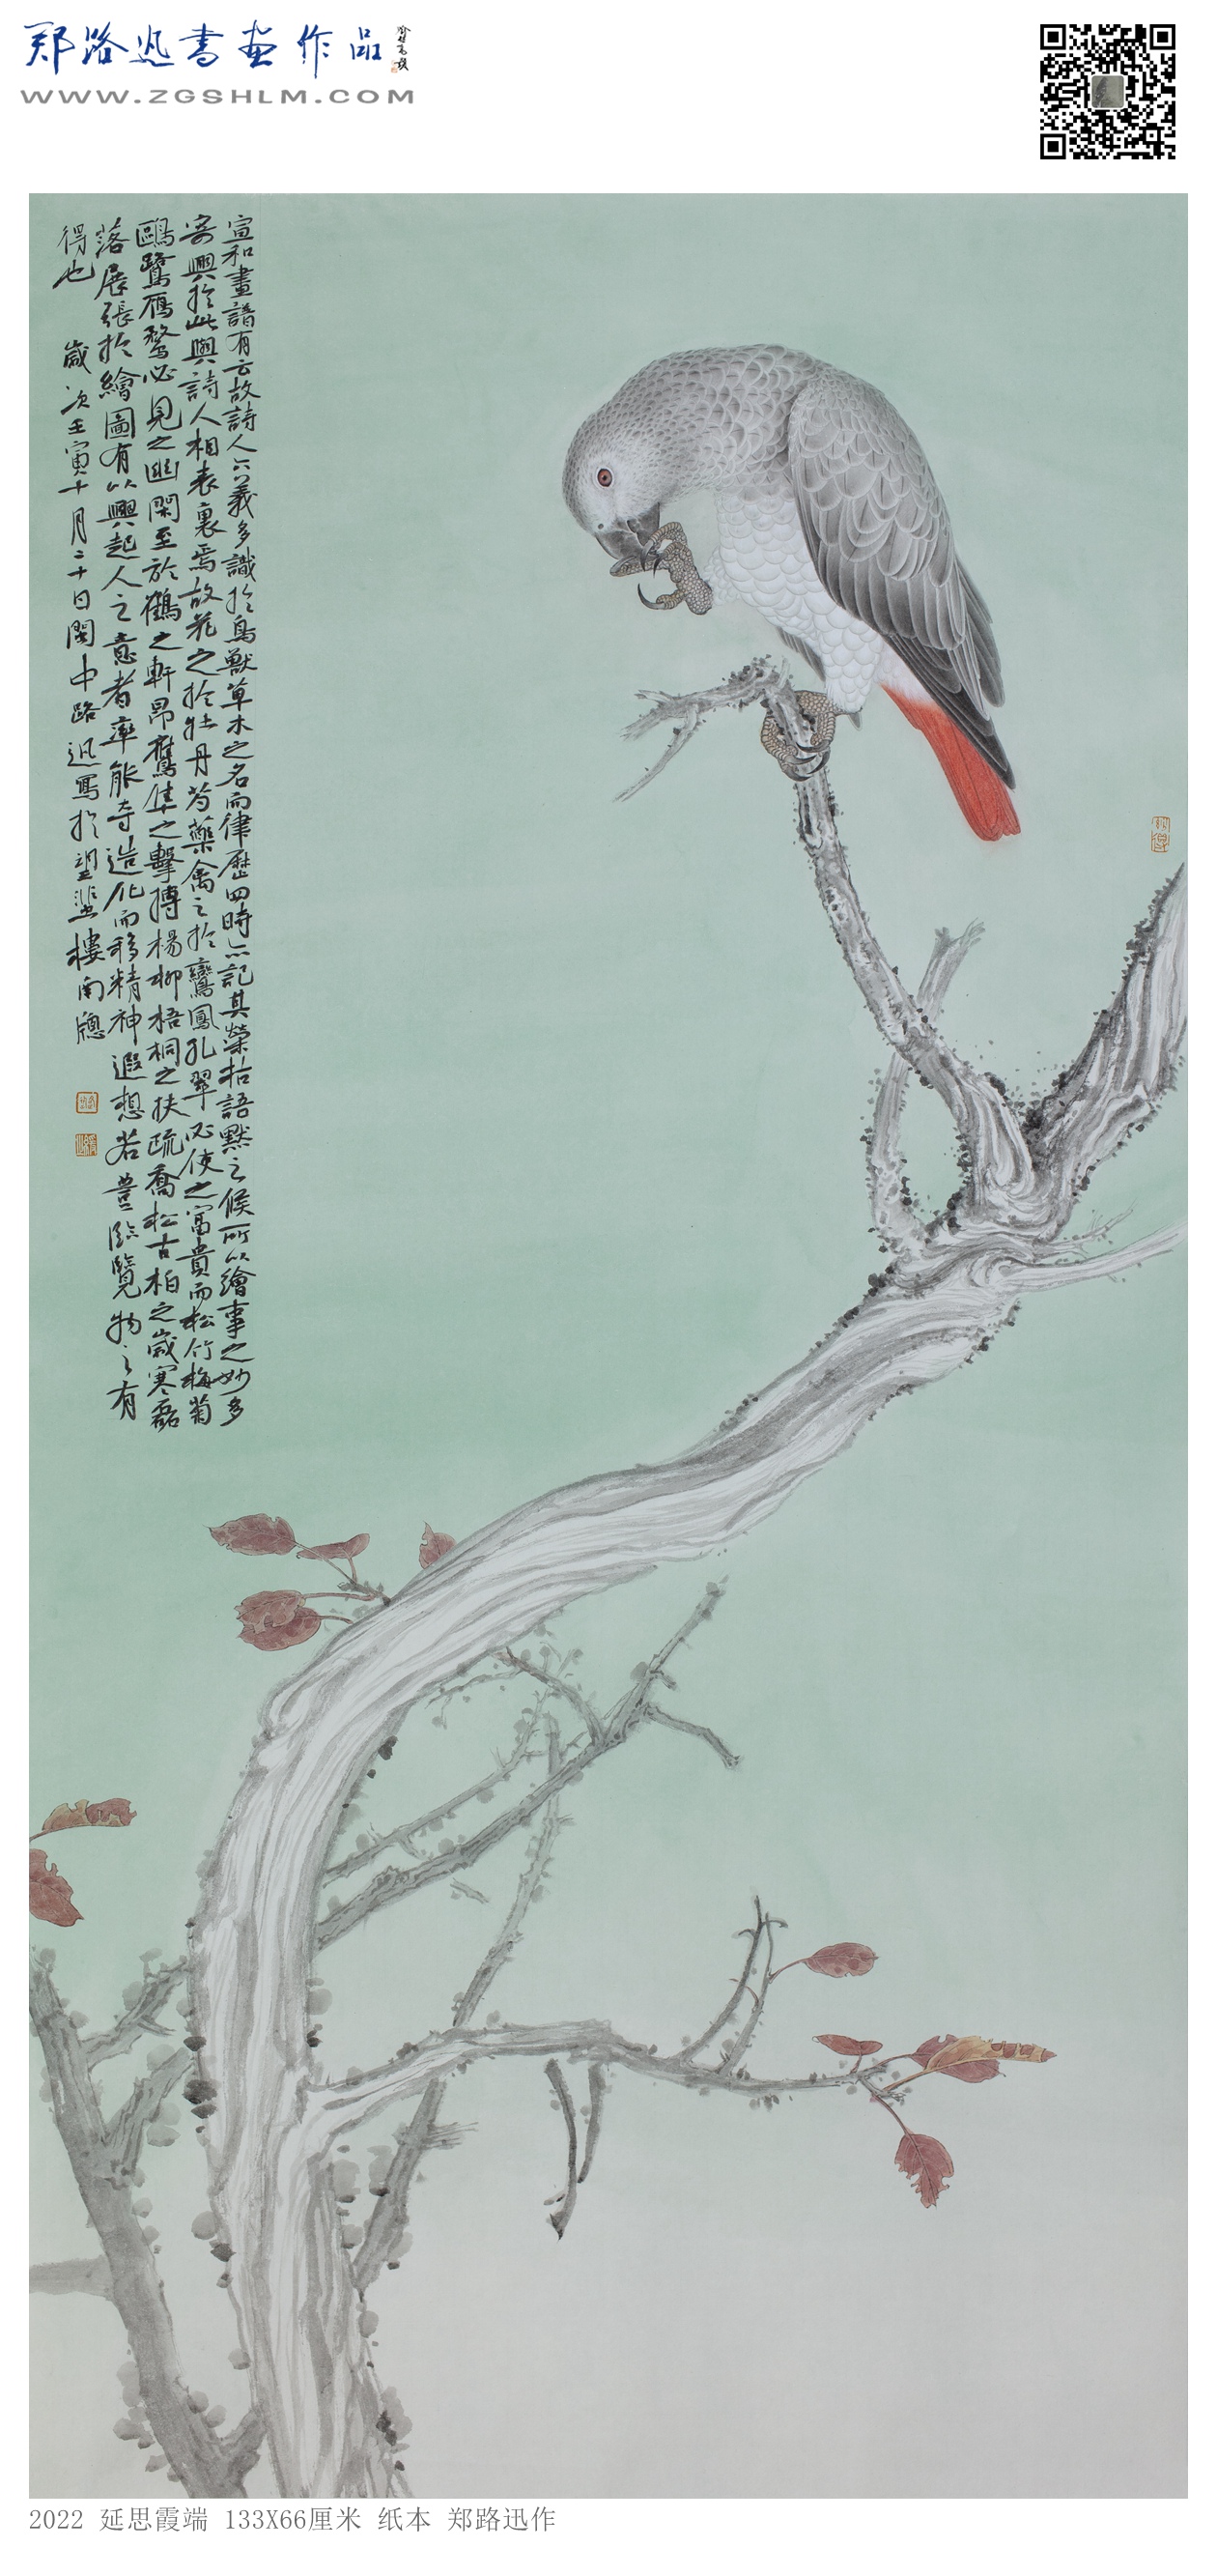 郑路迅书画作品
WWW.ZGSHLM.COM
宣和畫譜有云故詩人六義多識於鳥獸草木之名而律歷四時亦記其榮枯語默之候所以繪事之妙多
寄興於此與詩人相表裏焉故花之於牡丹芍藥禽之於鸞鳳孔翠必使之富貴而松竹梅菊
鷗鷺雁鶩必見之幽閑至於鶴之軒昂鷹隼之擊搏楊柳梧桐之扶疏喬松古柏之歲寒磊
落展張於繪圖有以興起人之意者率能奪造化而移精神遐想若登臨覽物之有
得也 歲次壬寅十月二十日閩中路迅寫於樓南牕
2022 延思霞端 133X66厘米 纸本 郑路迅作